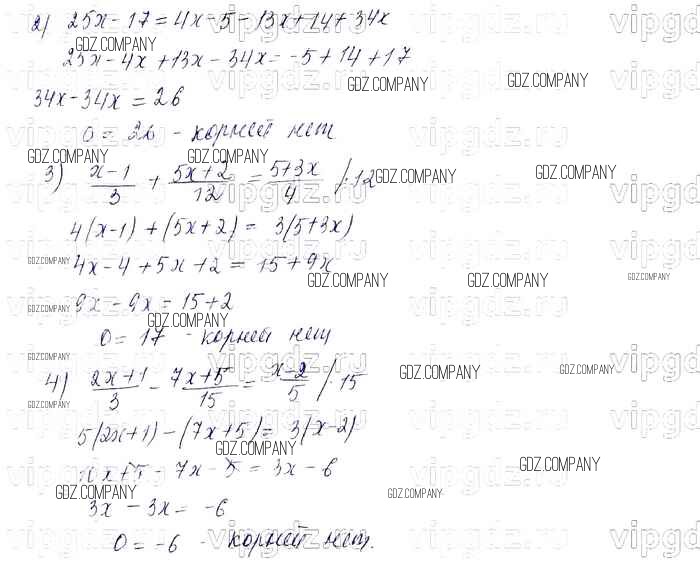 2) 25x - 17 = 4x - 5 - 13x + 14 + 34x
GDZ.COMPANY
25x - 4x + 13x - 34x = -5 + 14 + 17
GDZ.COMPANY GDZ.COMPANY
34x - 34x = 26
0 = 26 - корней нет
GDZ.COMPANY GDZ.COMPANY
3) (x-1)/3 + (5x+2)/12 = (5+3x)/4 /·12
GDZ.COMPANY GDZ.COMPANY
4(x-1) + (5x+2) = 3(5+3x)
GDZ.COMPANY
4x - 4 + 5x + 2 = 15 + 9x
GDZ.COMPANY GDZ.COMPANY GDZ.COMPANY
9x - 9x = 15 + 2
GDZ.COMPANY GDZ.COMPANY
0 = 17 - корней нет
GDZ.COMPANY
4) (2x+1)/3 - (7x+5)/15 = (x-2)/5 /·15
GDZ.COMPANY
GDZ.COMPANY
5(2x+1) - (7x+5) = 3(x-2)
GDZ.COMPANY
10x + 5 - 7x - 5 = 3x - 6
GDZ.COMPANY
GDZ.COMPANY GDZ.COMPANY
3x - 3x = -6
0 = -6 - корней нет.
vipgdz.ru